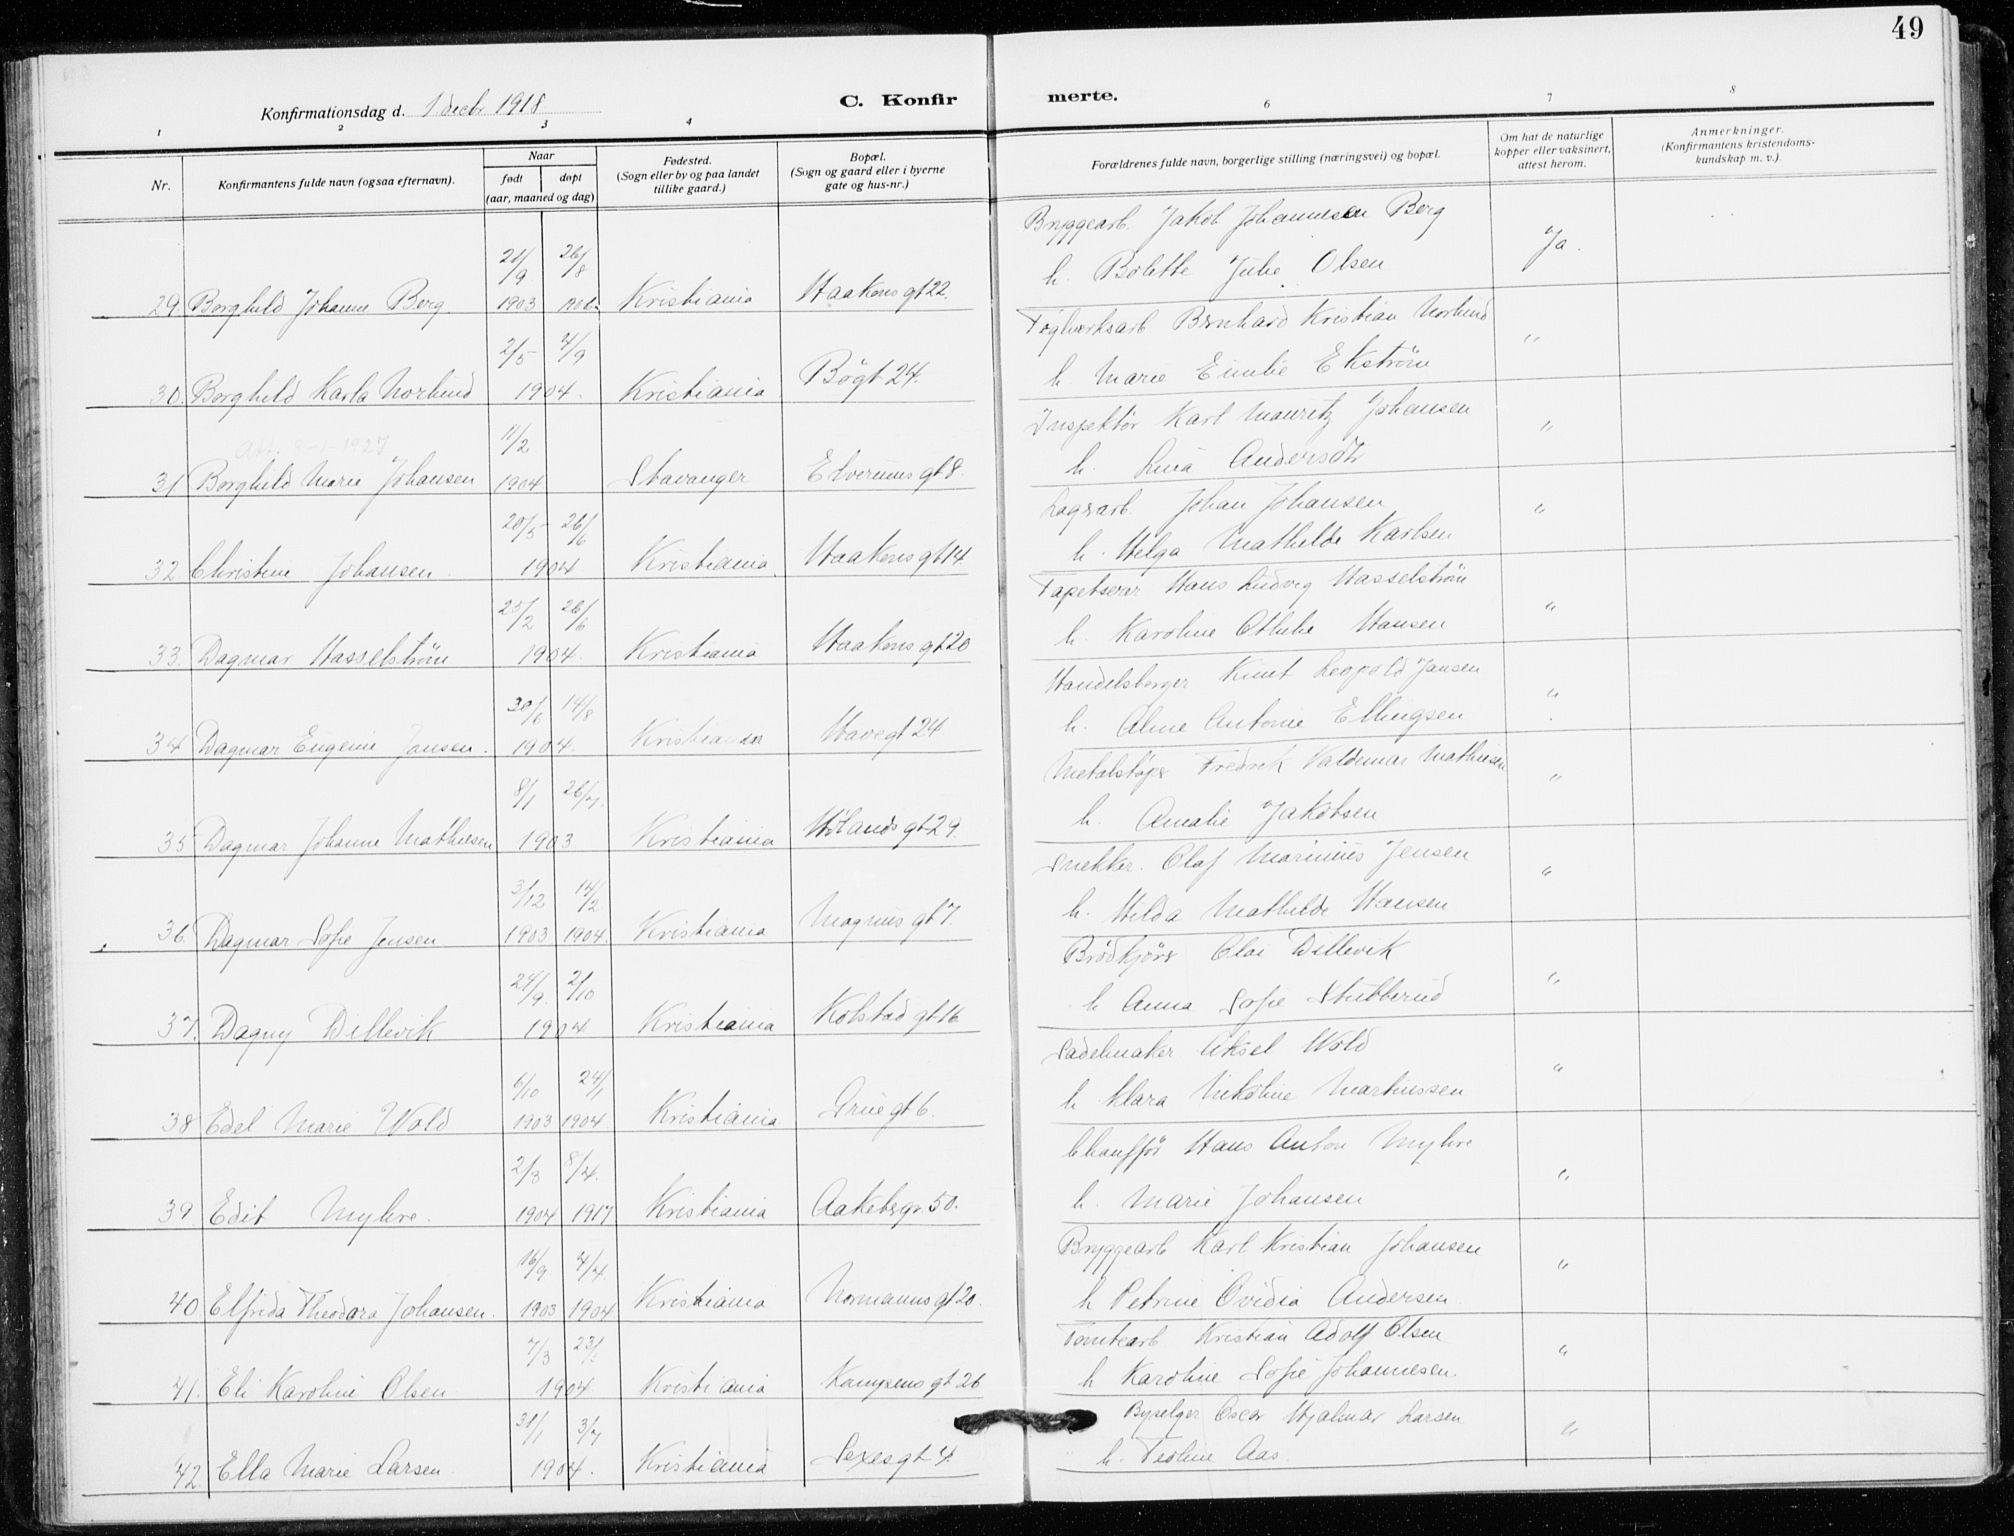 49
Konfirmationsdag d. 1 decbr 1918
C. Konfir
merte.
1 2 3 4 6 7 8
Nr.
Konfirmantens fulde navn (ogsaa efternavn).
Naar
født døpt
(aar, maaned og dag)
Fødested.
(Sogn eller by og paa landet
tillike gaard.)
Bopæl.
(Sogn og gaard eller i byerne
gate og hus-nr.)
Forældrenes fulde navn, borgerlige stilling (næringsvei) og bopæl.
Om hat de naturlige
kopper eller vaksinert,
attest herom.
Anmerkninger.
(Konfirmantens kristendoms-
kundskap m. v.).
Bryggearb. Jakob Johannesen Berg
21/9 26/8 Ja.
h. Bolette Julie Olsen
29. Borghild Johanne Berg. 1903 1906. Kristiania Haakons gt 22.
Teglverksarb Bernhard Kristian Norlund
2/5 4/9 "
h. Marie Emilie Ekstrøm
30. Borghild Karla Norlund 1904. Kristiania Bøgt 24.
Inspektør Karl Mauritz Johansen
Att. 8-1-1927 11/2 "
h. Lina Andersdtr
31 Borghild Marie Johansen 1904 Stavanger Elverums gt 8.
Lagerarb. Johan Johansen
20/5 26/6 "
h. Helga Mathilde Karlsen
32 Christine Johansen. 1904 Kristiania Haakons gt 14
Tapetserer Hans Ludvig Hasselstrøm
25/2 26/6 "
h. Karoline Othilie Hansen
33. Dagmar Hasselstrøm 1904. Kristiania Haakons gt 20
Handelsborger Knut Leopold Jansen
30/6 14/8 "
h. Aline Antonie Ellingsen
34 Dagmar Eugenie Jansen. 1904. Kristiania Havegt 24
Metalstøper Fredrik Valdemar Mathiesen
8/1 26/7. "
h. Amalie Jakobsen
35 Dagmar Johanne Mathiesen 1903 Kristiania Hølands gt 29.
Snekker. Olaf Marinius Jensen
3/12 14/2 "
h. Hilda Mathilde Hansen
36. Dagmar Sofie Jensen 1903 1904. Kristiania Magnus gt 7.
Brødkjører Olai Dillevik
24/9. 2/10 "
h Anna Sofie Stubberud
37. Dagny Dillevik 1904 Kristiania Kolstad gt 16
Sadelmaker Aksel Wold
6/10 24/1 "
h Klara Nikoline Martinssen
38 Edel Marie Wold 1903 1904. Kristiania Grue gt 6.
Chauffør Hans Anton Myhre
2/3 8/4. "
h. Marie Johansen
39 Edit Myhre. 1904 1917 Kristiania Aakebgr 50.
Bryggearb Karl Kristian Johansen
16/9. 4/4. "
h Petrine Ovidia Andersen
40 Elfrida Theodora Johansen. 1903 1904 Kristiania Normanns gt 20.
Tomtearb Kristian Adolf Olsen
7/3 "
h Karoline Sofie Johannesen.
41. Eli Karoline Olsen 1904. Kristiania Kampens gt 26
Byselger Oscar Hjalmar Larsen
31/1 3/7 "
h. Teoline Aas.
42. Ella Marie Larsen. 1904. Kristiania Sexes gt 4.